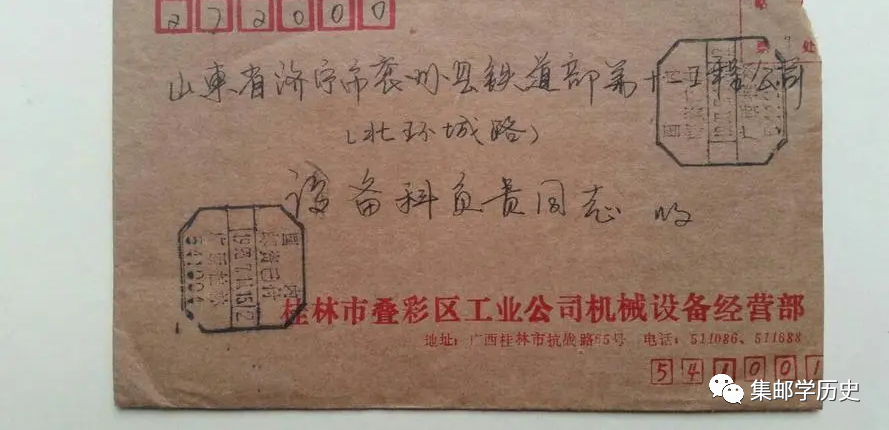 272000
票 处
山東省济宁市衮州县铁道部第十二工程公司
(北环城路)
设备科 贵同志 收
国 内
邮资已付
541004
桂林市叠彩区工业公司机械设备经营部
地址:广西桂林市抗战路65号 电话:511086、511688
541001
集邮学历史